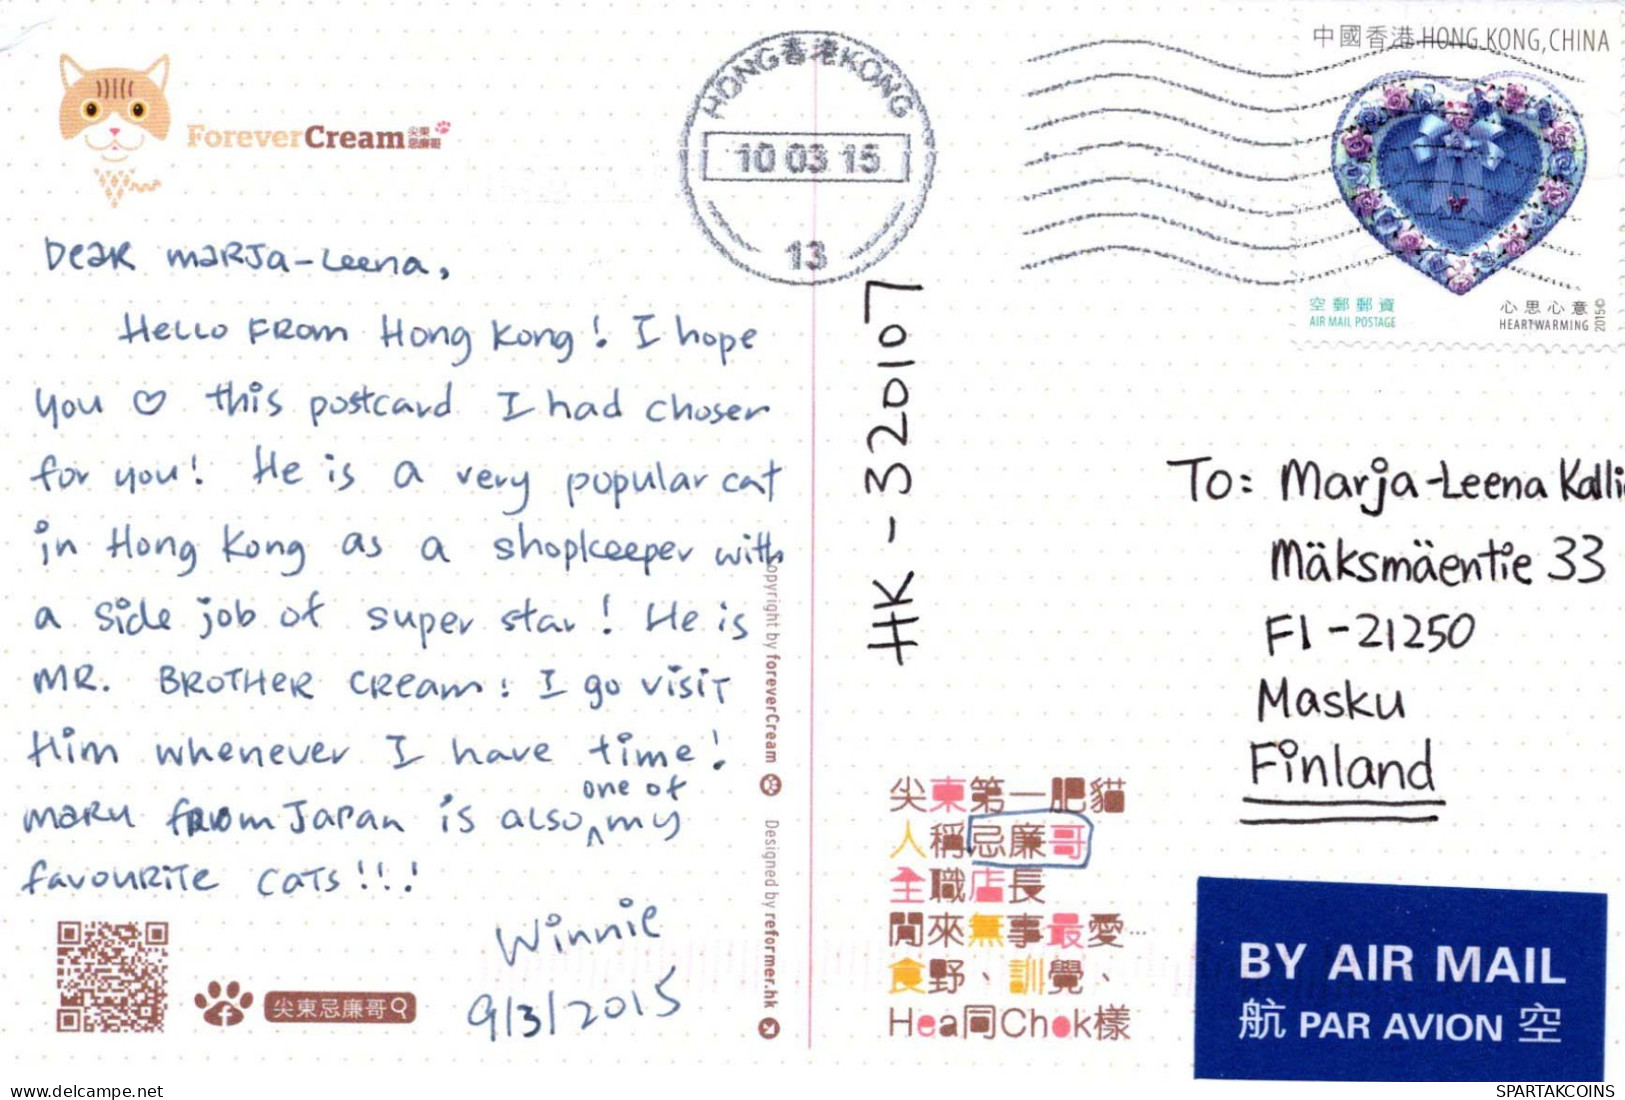 ForeverCream 尖東忌廉哥
HONG香港KONG
10 03 15
13
中國香港 HONG KONG, CHINA
空郵郵資
AIR MAIL POSTAGE
心思心意
HEARTWARMING
2015©
Dear Marja-Leena,
Hello from Hong Kong! I hope
you ♡ this postcard I had chosen
for you! He is a very popular cat
in Hong Kong as a shopkeeper with
a side job of super star! He is
Mr. Brother Cream! I go visit
Him whenever I have time!
one of
Maru from Japan is also ^ my
favourite cats!!!
Winnie
9/3/2015
尖東忌廉哥
Copyright by foreverCream
Designed by reformer.hk
HK-320107
To: Marja-Leena Kalli
Mäksmäentie 33
FI-21250
Masku
Finland
尖東第一肥貓
人稱忌廉哥
全職店長
閒來無事最愛…
食野、訓覺、
Hea同Chok樣
BY AIR MAIL
航 PAR AVION 空
SPARTAKCOINS